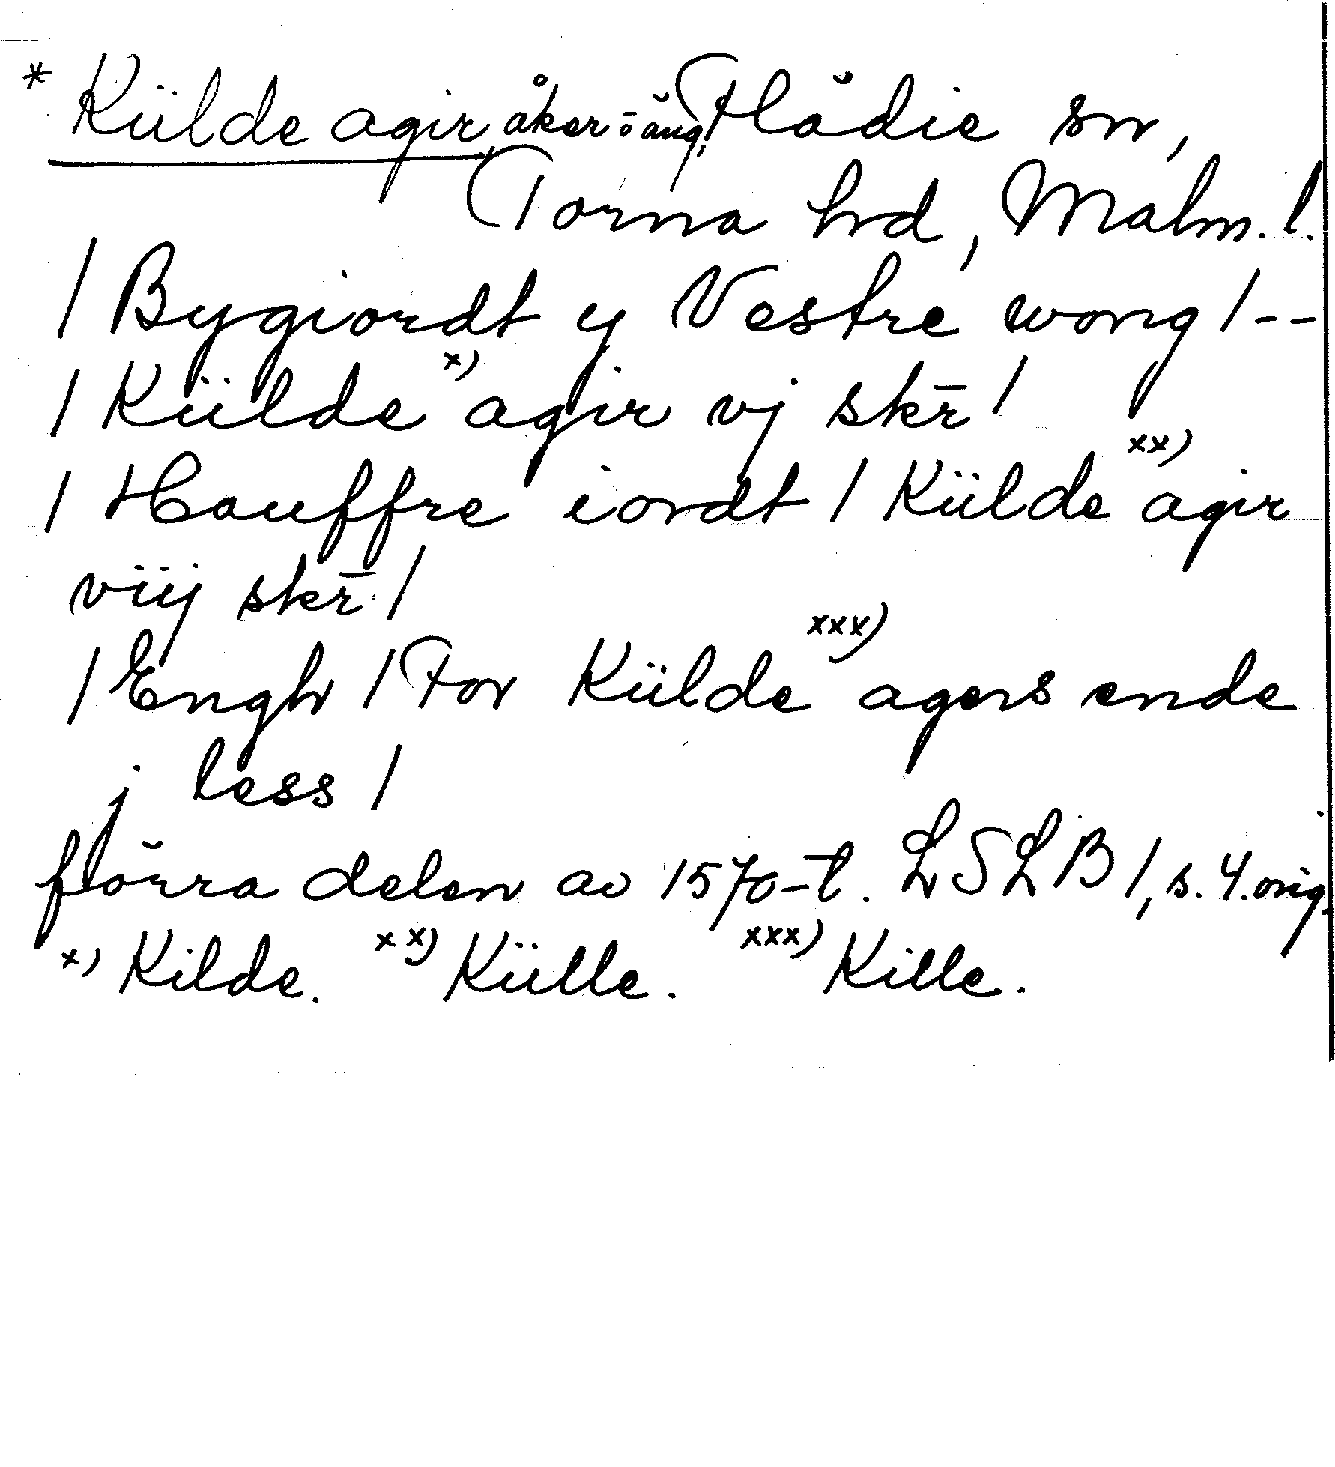 * Küilde agir, åker o. äng, Flädie sn,
Torna hrd, Malm. l.
/ Bygiordt y Vestre wong / --
/ Küilde x) agir vj skr̄ /
/ Houffre iordt / Küilde xx) agir
viij skr̄ /
/ Engh / For Küilde xxx) agers ende
j less /
förra delen av 1570-t. LSLB 1, s. 4. orig.
x) Kilde. xx) Küille. xxx) Kille.